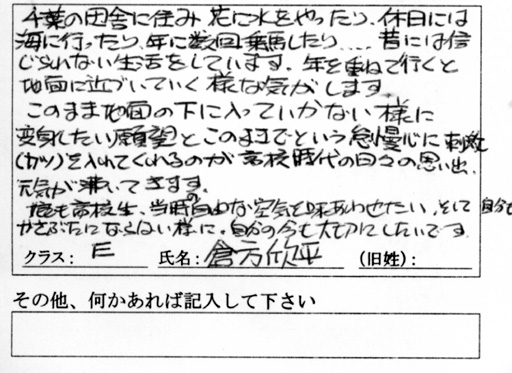 千葉の田舎に住み 花に水をやったり、休日には
海に行ったり、年に数回乗馬したり.... 昔には信
じられない生活をしています。年を重ねて行くと
地面に近づいていく様な気がします。
このまま地面の下に入っていかない様に
変身したい願望とこのままでという怠慢心に刺激
(カツ)を入れてくれるのが高校時代の日々の思い出、
元気が沸いてきます。
息も高校生、当時の自由な空気を味あわせたい、そして自分も
かさぶたにならない様に。自分の今も大切にしたいです
クラス: E 氏名: 倉方欣平 (旧姓:)
その他、何かあれば記入して下さい